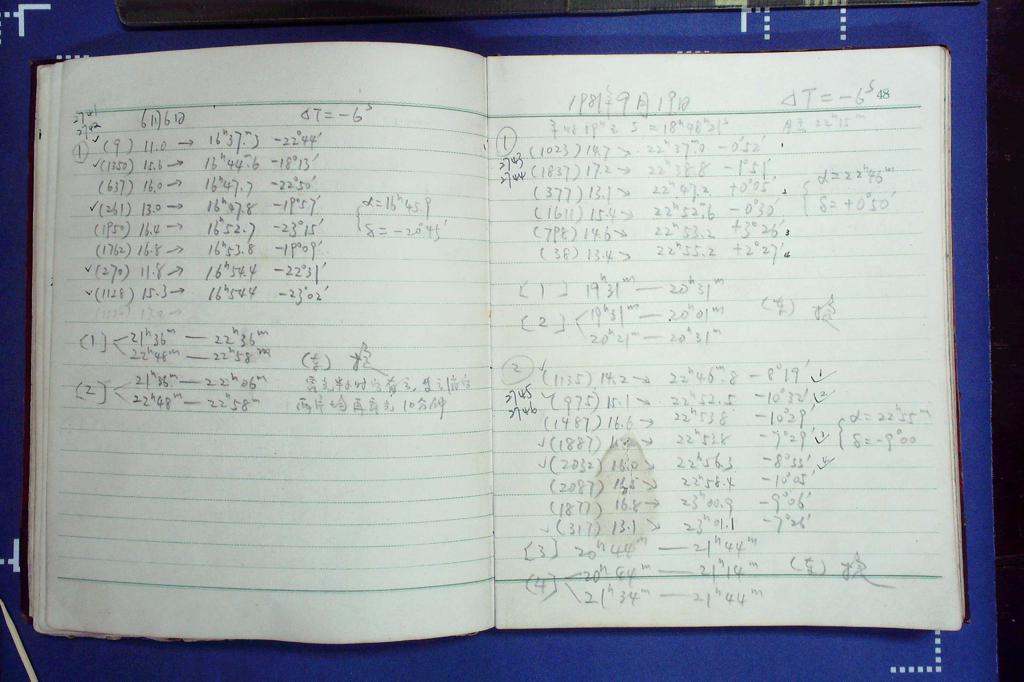 2741
2742
6月6日 ΔT=-6ˢ
① ✓(9) 11.0 → 16ʰ37ᵐ.3 -22°44′
✓(1350) 15.6 → 16ʰ44ᵐ.6 -18°13′
(637) 16.0 → 16ʰ47.7 -22°50′
✓(261) 13.0 → 16ʰ47.8 -19°57′
(1950) 16.4 → 16ʰ52.7 -23°15′
(1762) 16.8 → 16ʰ53.8 -19°09′
✓(270) 11.8 → 16ʰ54.4 -22°31′
✓(1128) 15.3 → 16ʰ54.4 -23°02′
α=16ʰ45.9
δ=-20°45′
[1] 21ʰ36ᵐ — 22ʰ36ᵐ
22ʰ48ᵐ — 22ʰ58ᵐ
[2] 21ʰ36ᵐ — 22ʰ06ᵐ
22ʰ48ᵐ — 22ʰ58ᵐ
两片均再露光10分钟
1981年9月19日 ΔT=-6ˢ 48
=18ʰ48ᵐ21ˢ 22ʰ15ᵐ
①
2743
2744
(1023) 14.7 → 22ʰ37ᵐ.0 -0°52′
(1837) 17.2 → 22ʰ38.8 -1°51′
(377) 13.1 → 22ʰ47.2 +0°05′
(1611) 15.4 → 22ʰ52ᵐ.6 -0°30′
(798) 14.6 → 22ʰ53.2 +3°26′
(38) 13.4 → 22ʰ55.2 +2°27′
α=22ʰ45ᵐ
δ=+0°50′
[1] 19ʰ31ᵐ — 20ʰ31ᵐ
[2] 19ʰ31ᵐ — 20ʰ01ᵐ
20ʰ21ᵐ — 20ʰ31ᵐ
②
2745
2746
✓(1135) 14.2 → 22ʰ46ᵐ.8 -8°19′ ✓1
✓(975) 15.1 → 22ʰ52.5 -10°32′ ✓2
(1487) 16.6 → 22ʰ53.8 -10°29′
✓(1887) → 22ʰ53.8 -7°29′ ✓3
✓(2032) 16.0 → 22ʰ56.3 -8°33′ ✓4
(2087) 16.5 → 22ʰ58.4 -10°05′
(1877) 16.8 → 23ʰ00.9 -9°06′
✓(317) 13.1 → 23ʰ01.1 -7°26′
α=22ʰ55ᵐ
δ=-9°00
[3] 20ʰ44ᵐ — 21ʰ44ᵐ
[4] 20ʰ44ᵐ — 21ʰ14ᵐ
21ʰ34ᵐ — 21ʰ44ᵐ